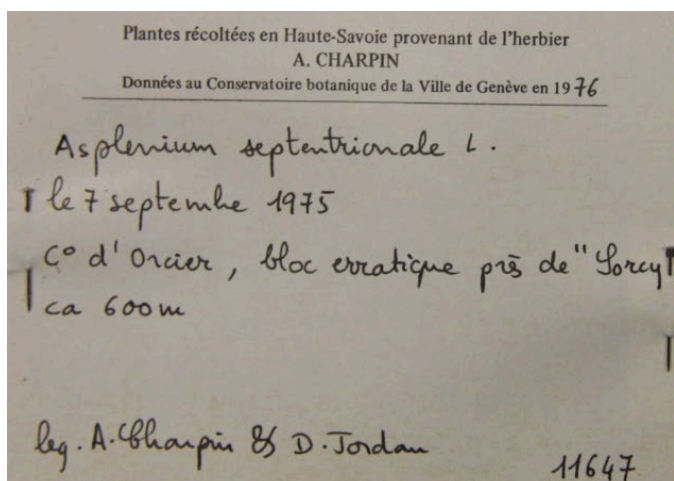 Plantes récoltées en Haute-Savoie provenant de l'herbier
A. CHARPIN
Données au Conservatoire botanique de la Ville de Genève en 1976
Asplenium septentrionale L.
le 7 septembre 1975
Cº d'Orcier, bloc erratique près de "Sorcy
ca 600m
leg. A. Charpin & D. Jordan
11647